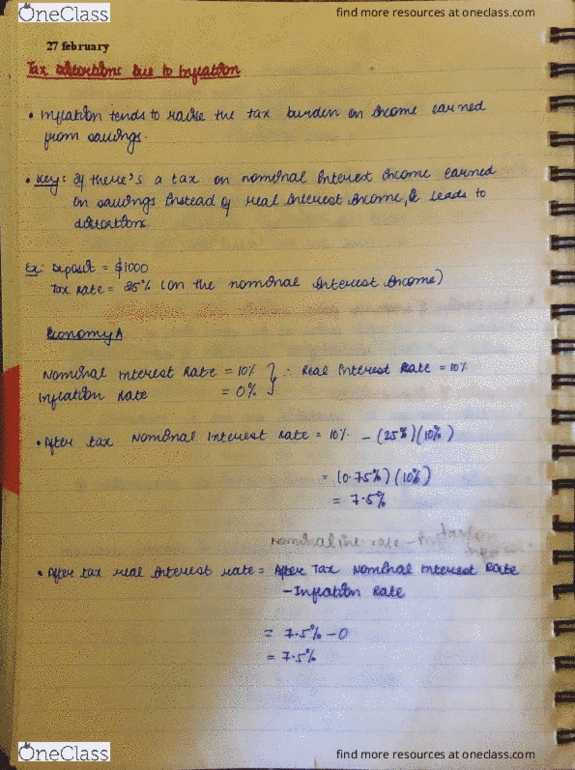 OneClass
find more resources at oneclass.com
27 february
Tax distortions due to Inflation
• Inflation tends to raise the tax burden on income earned
from savings.
• Key: If there's a tax on nominal interest income earned
on savings instead of real interest income, it leads to
distortions
Ex: Deposit = $1000
Tax rate = 25% (on the nominal interest income)
Economy A
Nominal Interest Rate = 10% } ∴ Real Interest Rate = 10%
Inflation Rate = 0%
• After tax Nominal Interest rate = 10% - (25%)(10%)
= (0.75%)(10%)
= 7.5%
nominal int rate -
• After tax real interest rate = After Tax Nominal Interest Rate
- Inflation Rate
= 7.5% - 0
= 7.5%
OneClass
find more resources at oneclass.com